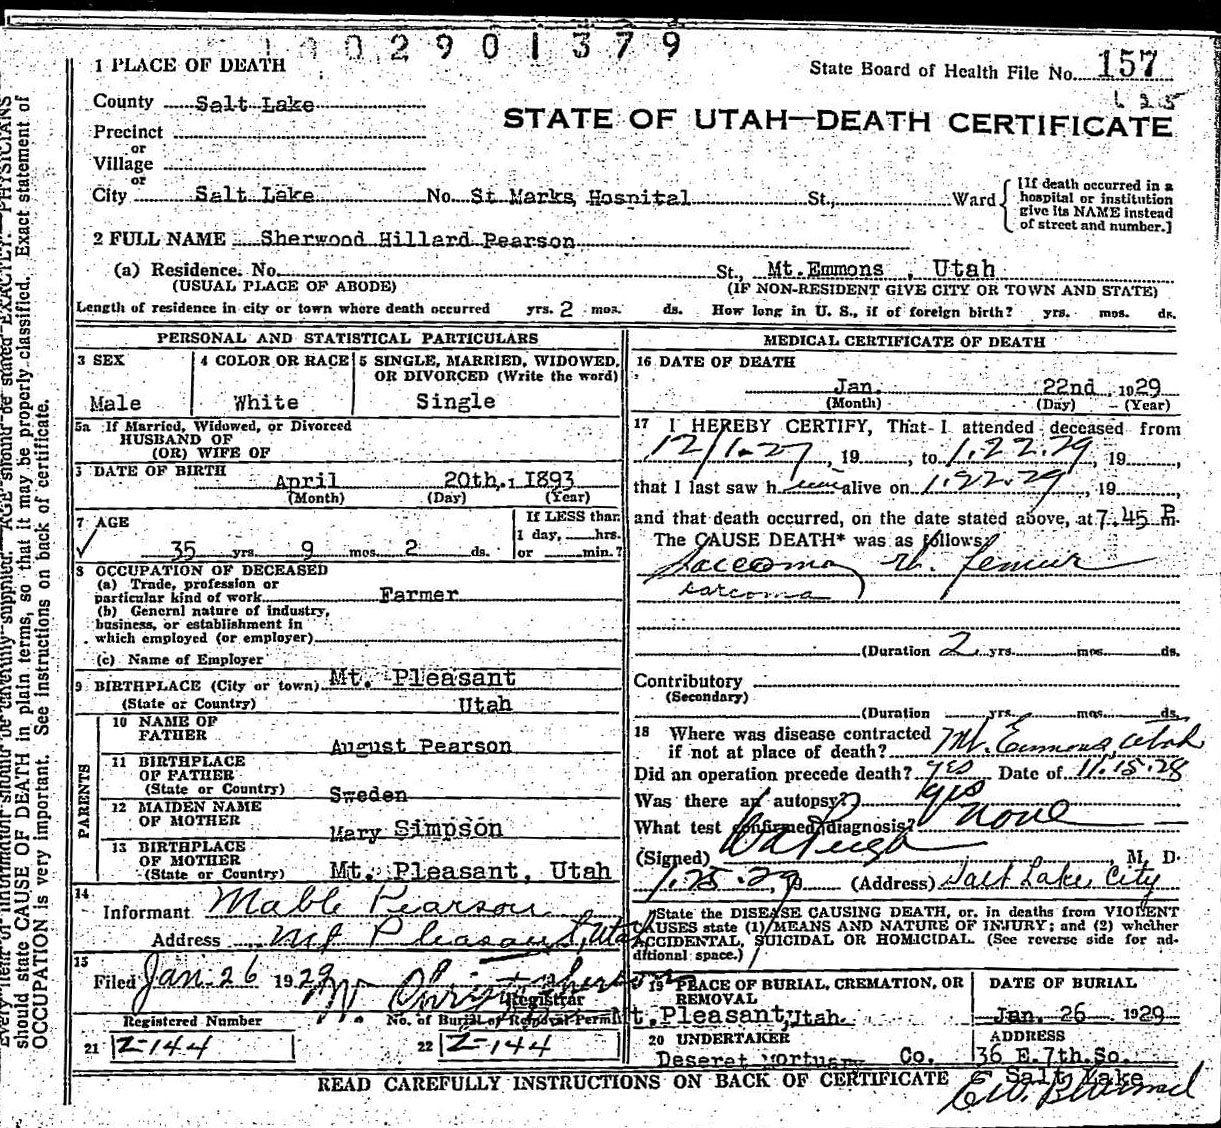 1 1 0 2 9 0 1 3 7 9
1 PLACE OF DEATH
State Board of Health File No. 157
County Salt Lake
STATE OF UTAH—DEATH CERTIFICATE
Precinct
or
Village
or
City Salt Lake No. St Marks Hospital St., Ward
[If death occurred in a
hospital or institution
give its NAME instead
of street and number.]
2 FULL NAME Sherwood Hillard Pearson
(a) Residence. No. St., Mt. Emmons , Utah
(USUAL PLACE OF ABODE) (IF NON-RESIDENT GIVE CITY OR TOWN AND STATE)
Length of residence in city or town where death occurred yrs. 2 mos. ds. How long in U. S., if of foreign birth? yrs. mos. ds.
PERSONAL AND STATISTICAL PARTICULARS
3 SEX
Male
4 COLOR OR RACE
White
5 SINGLE, MARRIED, WIDOWED,
OR DIVORCED (Write the word)
Single
5a If Married, Widowed, or Divorced
HUSBAND OF
(OR) WIFE OF
DATE OF BIRTH
April 20th., 1893
(Month) (Day) (Year)
7 AGE
35 yrs. 9 mos. 2 ds.
If LESS than
1 day, hrs.
or min.?
8 OCCUPATION OF DECEASED
(a) Trade, profession or
particular kind of work Farmer
(b) General nature of industry,
business, or establishment in
which employed (or employer)
(c) Name of Employer
9 BIRTHPLACE (City or town) Mt. Pleasant
(State or Country) Utah
PARENTS
10 NAME OF
FATHER August Pearson
11 BIRTHPLACE
OF FATHER
(State or Country) Sweden
12 MAIDEN NAME
OF MOTHER Mary Simpson
13 BIRTHPLACE
OF MOTHER
(State or Country) Mt. Pleasant, Utah
14
Informant Mable Pearson
Address Mt Pleasant, Utah
15
Filed Jan. 26 1929
Registrar
Registered Number
21 Z-144
No. of Burial or Removal Permit
22 Z-144
MEDICAL CERTIFICATE OF DEATH
16 DATE OF DEATH
Jan. 22nd 1929
(Month) (Day) (Year)
17 I HEREBY CERTIFY, That I attended deceased from
12/1.27, 19 , to 1.22.29, 19 ,
that I last saw h im alive on 1.22.29, 19 ,
and that death occurred, on the date stated above, at 7.45 P m.
The CAUSE DEATH* was as follows:
Sarcoma Rt. femur
sarcoma
(Duration 2 yrs. mos. ds.
Contributory
(Secondary)
(Duration yrs. mos. ds.
18 Where was disease contracted
if not at place of death? Mt. Emmons, Utah
Did an operation precede death? yes Date of 11.15.28
Was there an autopsy? yes
What test confirmed diagnosis? none
(Signed) , M. D.
1.25.29 (Address) Salt Lake City
State the DISEASE CAUSING DEATH, or, in deaths from VIOLENT
CAUSES state (1) MEANS AND NATURE OF INJURY; and (2) whether
ACCIDENTAL, SUICIDAL OR HOMICIDAL. (See reverse side for ad-
ditional space.)
19 PLACE OF BURIAL, CREMATION, OR
REMOVAL
t. Pleasant, Utah.
DATE OF BURIAL
Jan. 26 1929
20 UNDERTAKER
Deseret Mortuary Co.
ADDRESS
36 E. 7th. So.
Salt Lake
READ CAREFULLY INSTRUCTIONS ON BACK OF CERTIFICATE
should state CAUSE OF DEATH in plain terms, so that it may be properly classified. Exact statement of
OCCUPATION is very important. See instructions on back of certificate.